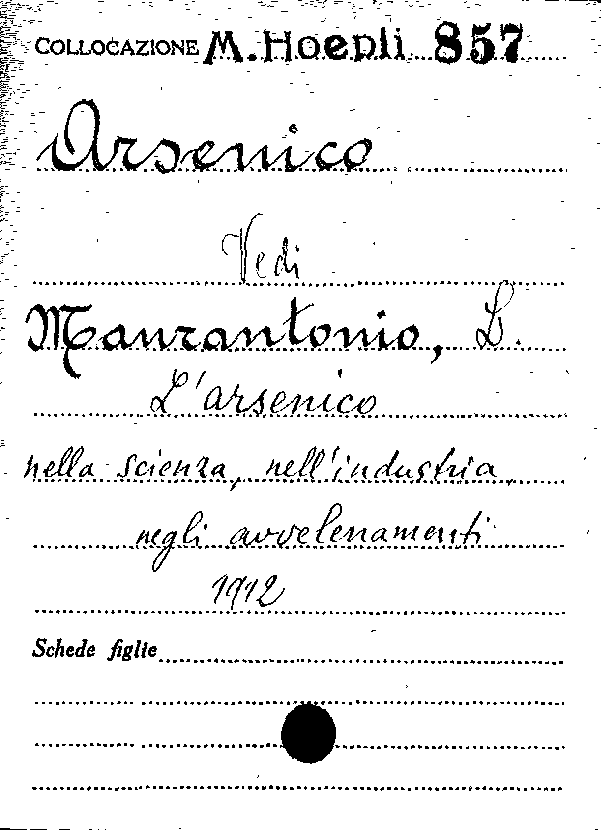 COLLOCAZIONE M. Hoepli 857
Arsenico
Vedi
Maurantonio, L.
L'arsenico
nella scienza, nell'industria,
negli avvelenamenti
1912
Schede figlie